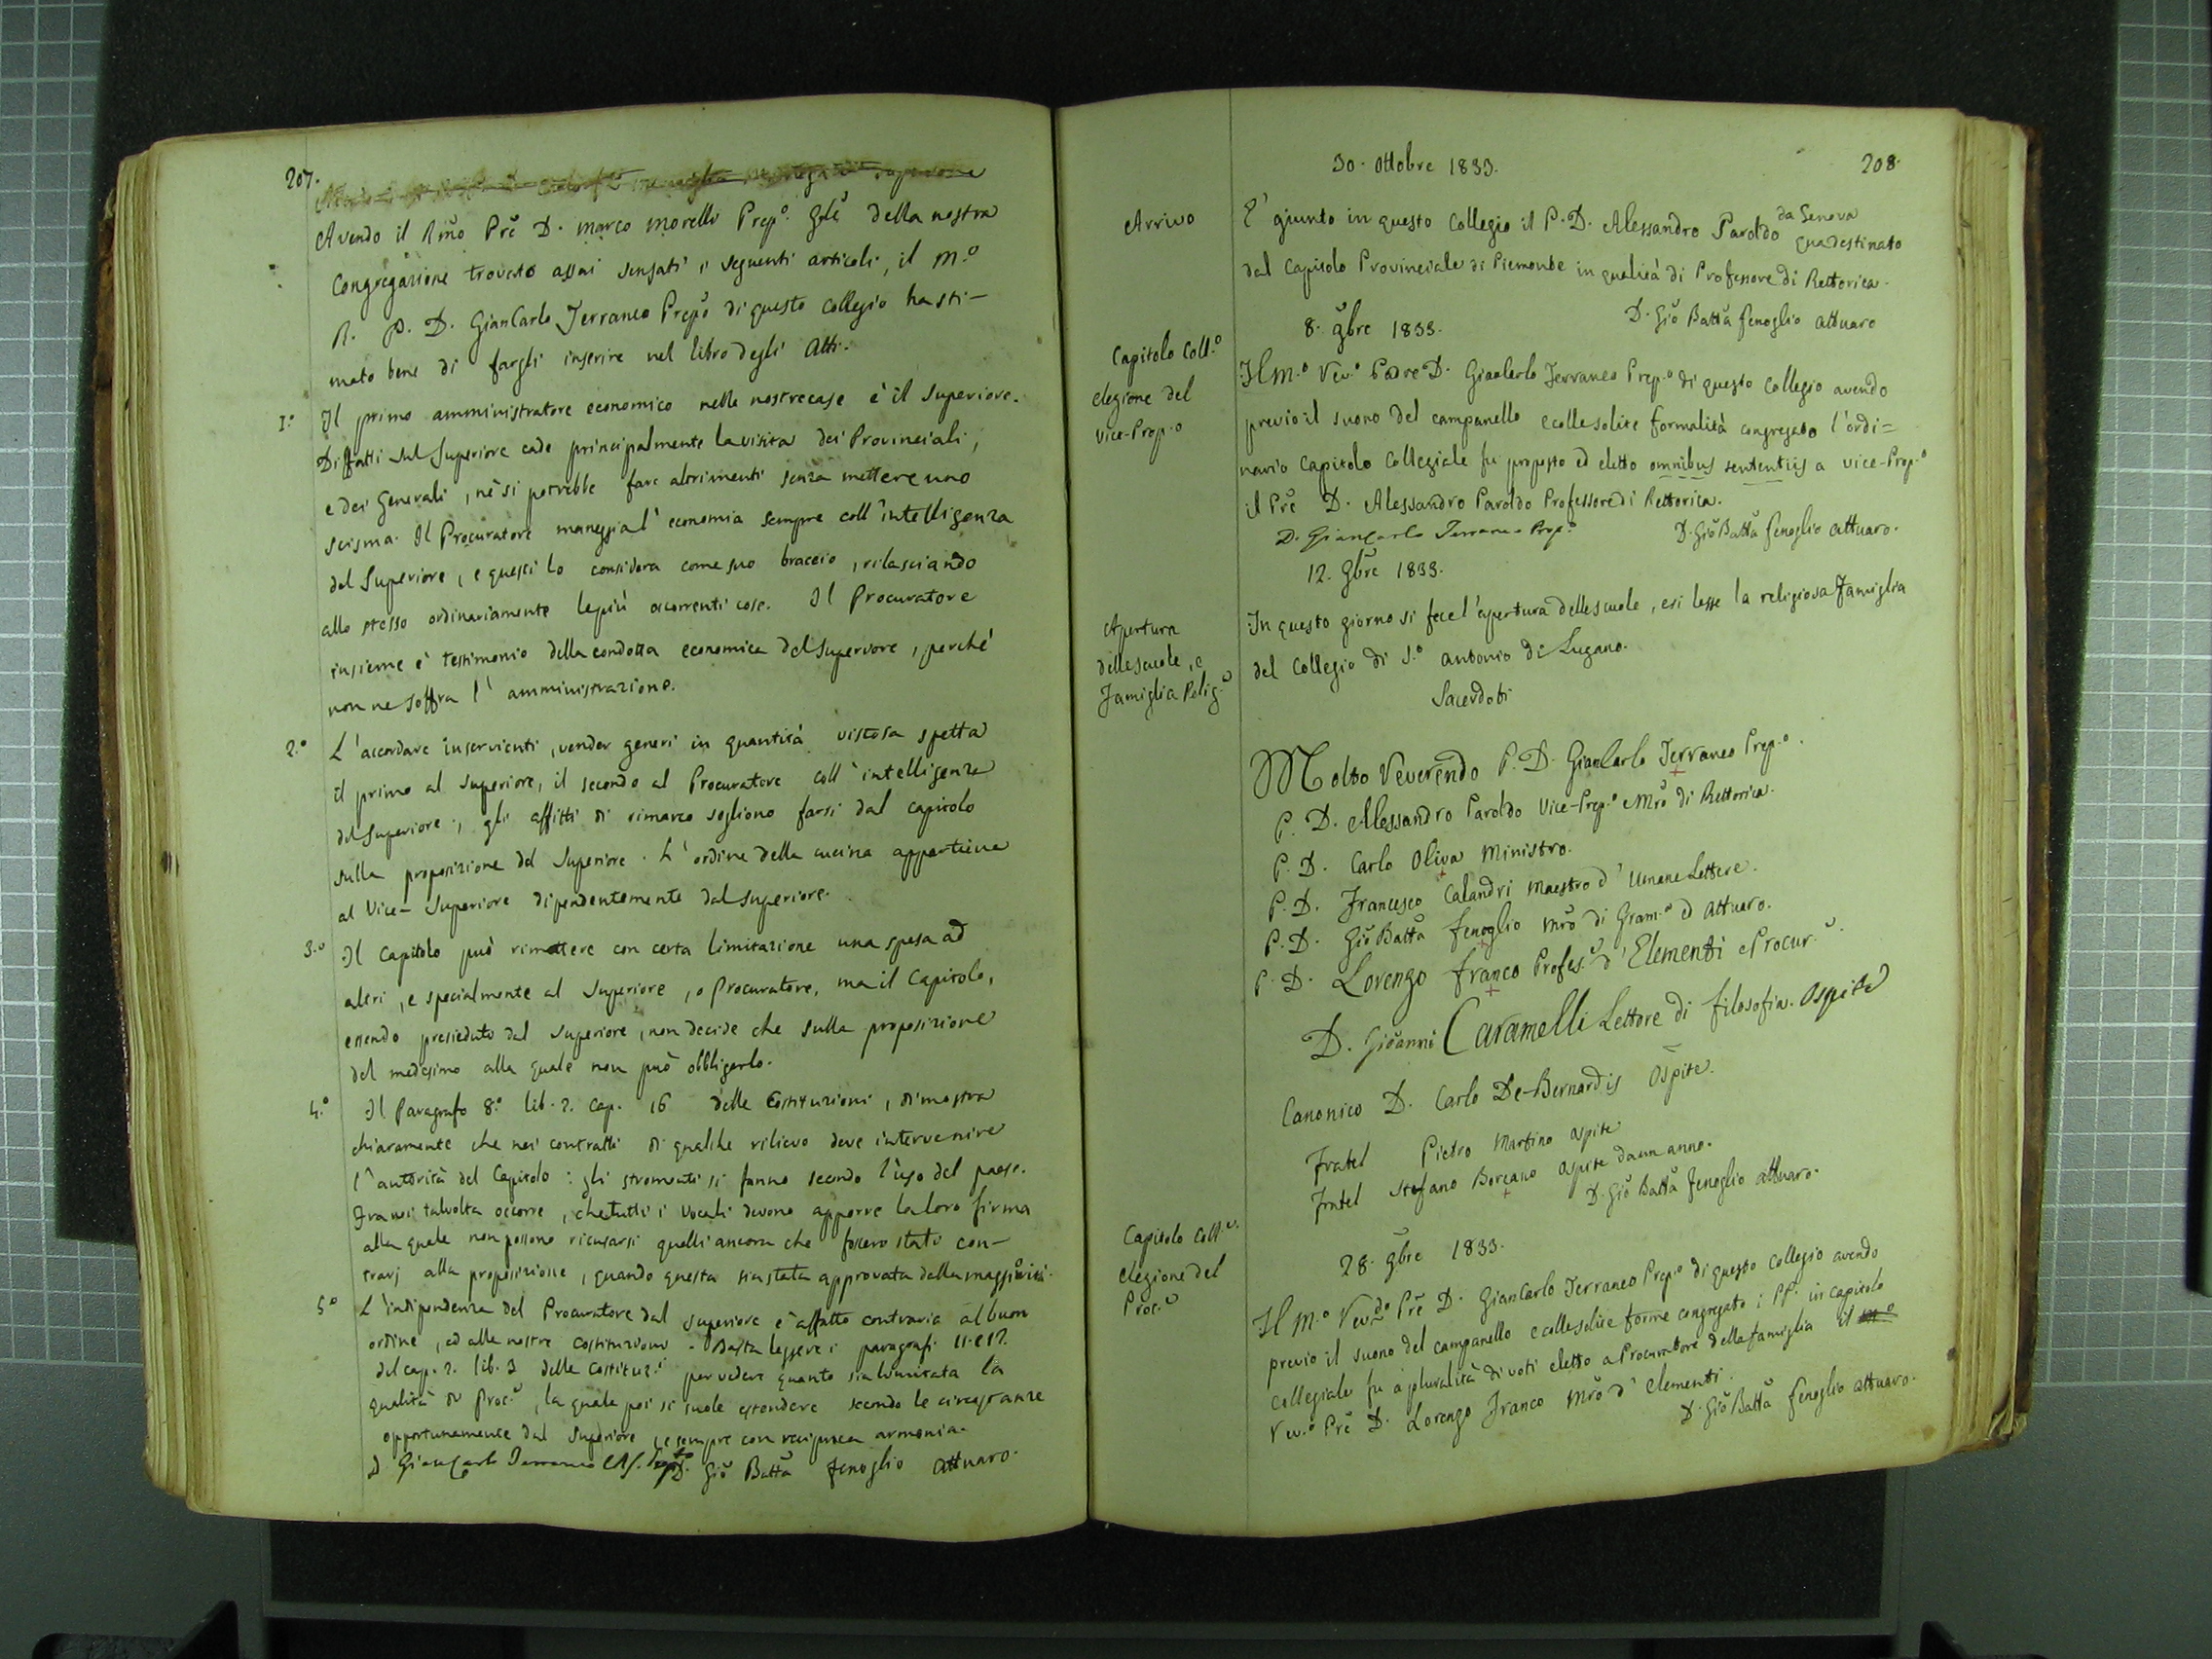 207.
Avendo il Rmo Pre D. Marco Morelli Prepº. Gle della nostra
Congregazione trovato assai sensati i seguenti articoli, il M.º
R. P. D. GianCarlo Terraneo Prepo di questo Collegio ha sti-
mato bene di fargli inserire nel libro degli Atti.
1.º Il primo amministratore economico nelle nostre case è il Superiore.
Di fatti sul Superiore cade principalmente la visita dei Provinciali,
e dei Generali, nè si potrebbe fare altrimenti senza mettere uno
scisma. Il Procuratore maneggia l'economia sempre coll'intelligenza
del Superiore, e questi lo considera come suo braccio, rilasciando
allo stesso ordinariamente le più occorrenti cose. Il Procuratore
insieme è testimonio della condotta economica del Superiore, perchè
non ne soffra l'amministrazione.
2.º L'accordare inservienti, vender generi in quantità vistosa spetta
il primo al Superiore, il secondo al Procuratore coll'intelligenza
del Superiore, gli affitti di rimarco sogliono farsi dal Capitolo
sulla proposizione del Superiore. L'ordine della cucina appartiene
al Vice-Superiore dipendentemente dal Superiore.
3.º Il Capitolo può rimettere con certa limitazione una spesa ad
altri, e specialmente al Superiore, o Procuratore, ma il Capitolo,
essendo presieduto dal Superiore, non decide che sulla proposizione
del medesimo alla quale non può obbligarlo.
4.º Il Paragrafo 8.º lib. 2. Cap. 16 delle Costituzioni, dimostra
chiaramente che nei contratti di qualche rilievo deve intervenire
l'autorità del Capitolo: gli stromenti si fanno secondo l'uso del paese.
Fra noi talvolta occorre, che tutti i Vocali devono apporre la loro firma
alla quale non possono ricusarsi quelli ancora che fossero stati con-
trarj alla proposizione, quando questa sia stata approvata dalla maggiorità.
5.º L'indipendenza del Procuratore dal Superiore è affatto contraria al buon
ordine, ed alle nostre Costituzioni. Basta leggere i paragrafi 11. e 12.
del cap. 2. lib. 3 delle Costituz.i per vedere quanto sia limitata la
qualità di Proc.e, la quale poi si suole estendere secondo le circostanze
opportunamente dal Superiore, e sempre con reciproca armonia.
D GianCarlo Terraneo
D. Gio Batta Fenoglio Attuaro.
208.
30. Ottobre 1833.
Arrivo
E' giunto in questo Collegio il P. D. Alessandro Paroldo da Genova qua destinato
dal Capitolo Provinciale di Piemonte in qualità di Professore di Rettorica.
D. Gio Batta Fenoglio Attuaro
8. 9bre 1833.
Capitolo Coll.º
elezione del
Vice-Prep.º
Il M.º Rev.º Padre D. GianCarlo Terraneo Prep.º di questo Collegio avendo
previo il suono del campanello e colle solite formalità congregato l'ordi=
nario Capitolo Collegiale fu proposto ed eletto omnibus sententiis a Vice-Prep.º
il Pre D. Alessandro Paroldo Professore di Rettorica.
D. GianCarlo Terraneo Prep.º
D. Gio Batta Fenoglio Attuaro.
12. 9bre 1833.
Apertura
delle scuole, e
Famiglia Relig.a
In questo giorno si fece l'apertura delle scuole, e si lesse la religiosa Famiglia
del Collegio di S.º Antonio di Lugano.
Sacerdoti
Molto Reverendo P. D. GianCarlo Terraneo Prep.º.
P. D. Alessandro Paroldo Vice-Prep.º e Mro di Rettorica.
P. D. Carlo Oliva Ministro.
P. D. Francesco Calandri Maestro d'Umane Lettere.
P. D. Gio Batta Fenoglio Mro di Gram.a ed Attuaro.
P. D. Lorenzo Franco Profes.e d'Elementi e Procur.e.
D. Gioanni Caramelli Lettore di Filosofia. Ospite
Canonico D. Carlo De-Bernardis Ospite.
Fratel Pietro Martino Ospite
Fratel Stefano Borcano Ospite da un anno.
D. Gio Batta Fenoglio Attuaro.
28. 9bre 1833.
Capitolo Coll.e
Elezione del
Proc.e
Il M.º Revdo Pre D. GianCarlo Terraneo Prep.º di questo Collegio avendo
previo il suono del campanello e colle solite forme congregato i PP. in Capitolo
Collegiale fu a pluralità di voti eletto a Procuratore della famiglia il M.º
Rev.º Pre D. Lorenzo Franco Mro d'Elementi.
D. Gio Batta Fenoglio Attuaro.